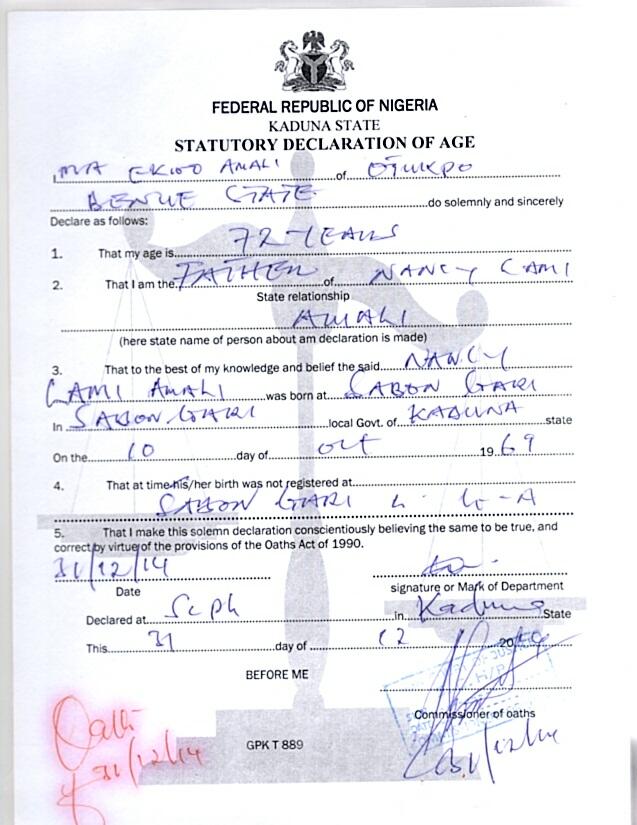 FEDERAL REPUBLIC OF NIGERIA
KADUNA STATE
STATUTORY DECLARATION OF AGE
AMALI of OTUKPO
BENUE STATE do solemnly and sincerely
Declare as follows:
1. That my age is 72 YEARS
2. That I am the FATHER of NANCY LAMI
State relationship
AMALI
(here state name of person about am declaration is made)
3. That to the best of my knowledge and belief the said NANCY
LAMI AMALI was born at SABON GARI
In SABON GARI local Govt. of KADUNA state
On the 10 day of OCT 1969
4. That at time his/her birth was not registered at
SABON GARI L. G-A
5. That I make this solemn declaration conscientiously believing the same to be true, and
correct by virtue of the provisions of the Oaths Act of 1990.
31/12/14
Date signature or Mark of Department
Declared at in Kaduna State
This 31 day of 12 20
BEFORE ME
Commissioner of oaths
Oath
31/12/14
GPK T 889
31/12/14